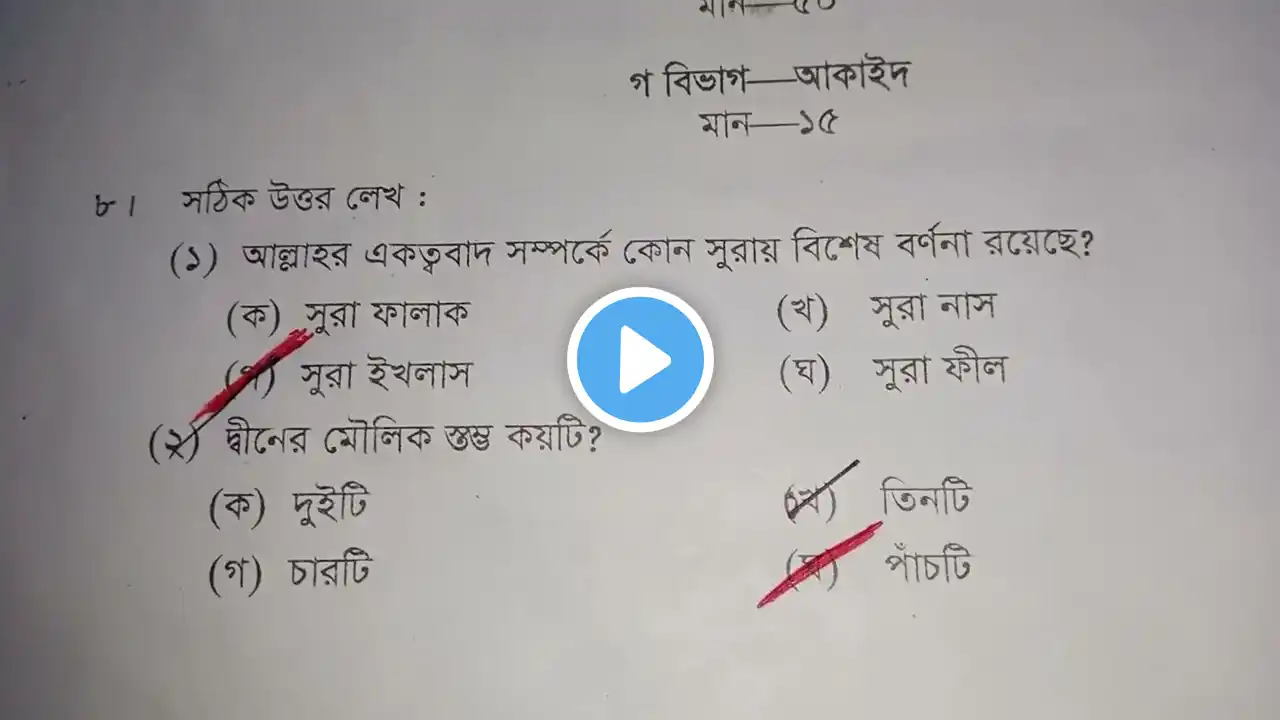 মান—৫০
গ বিভাগ—আকাইদ
মান—১৫
৮। সঠিক উত্তর লেখ :
(১) আল্লাহর একত্ববাদ সম্পর্কে কোন সূরায় বিশেষ বর্ণনা রয়েছে?
(ক) সূরা ফালাক (খ) সূরা নাস
(গ) সূরা ইখলাস (ঘ) সূরা ফীল
(২) দ্বীনের মৌলিক স্তম্ভ কয়টি?
(ক) দুইটি (খ) তিনটি
(গ) চারটি (ঘ) পাঁচটি